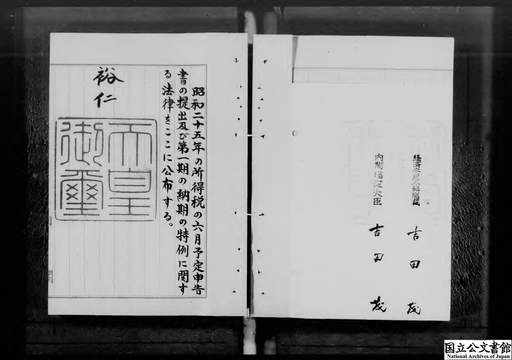 昭和二十五年の所得税の六月予定申告
書の提出及び第一期の納期の特例に関す
る法律をここに公布する。
裕仁
天皇
御璽
内閣総理大臣 吉田茂
吉田茂
国立公文書館
National Archives of Japan